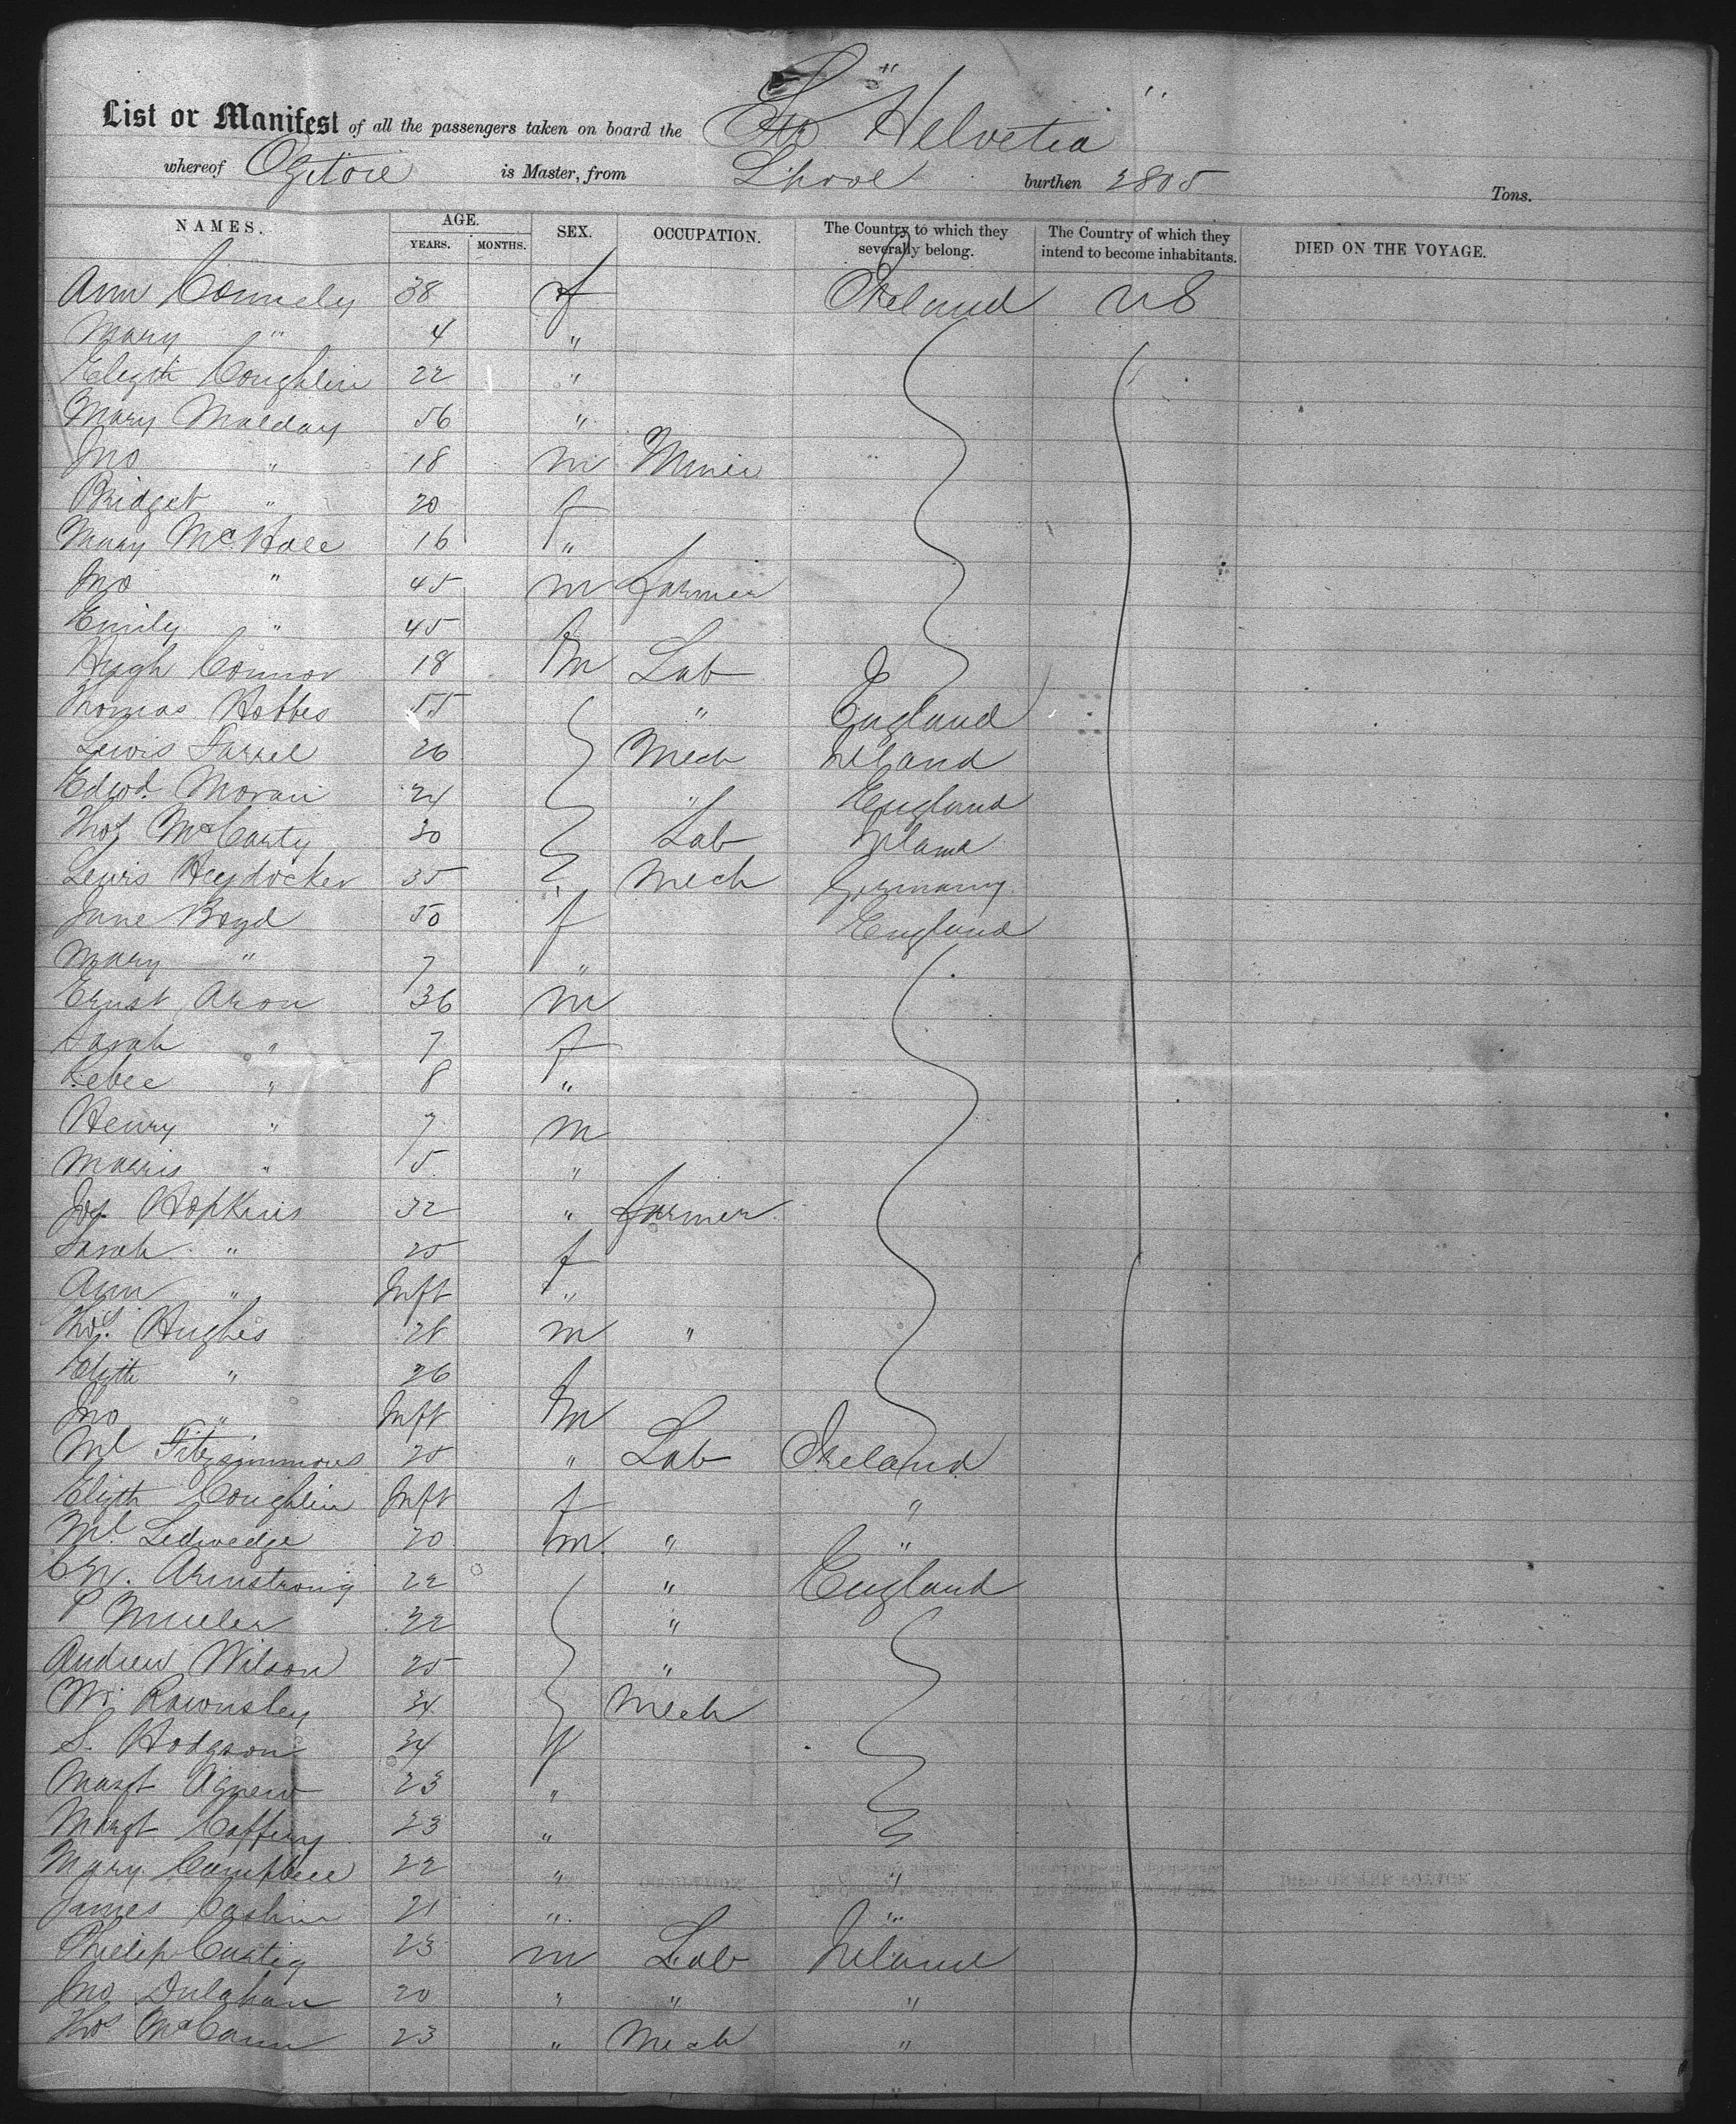 List or Manifest of all the passengers taken on board the Str "Helvetia"
whereof Ogilvie is Master, from L'pool burthen 2805 Tons.
NAMES. AGE. YEARS. MONTHS. SEX. OCCUPATION. The Country to which they severally belong. The Country of which they intend to become inhabitants. DIED ON THE VOYAGE.
Ann Connely 38 f Ireland US
Mary " 4 "
Elizth Coughlin 22 "
Mary Malday 56 "
Jno " 18 m Miner
Bridget " 20 f
Mary McHale 16 "
Jno " 45 m farmer
Emily " 45 f
Hugh Connor 18 m Lab
Thomas Hobbes 55 " England
Lewis Farrel 26 Mech Ireland
Edwd. Moran 24 " England
Thos McCarty 30 Lab Ireland
Lewis Heydocker 35 Mech Germany
Jane Boyd 50 f England
Mary " 7 "
Ernst Aron 36 m
Sarah " 7 f
Rebec " 8 "
Henry " 7 m
Morris " 5 "
Jos. Hopkins 32 " farmer
Sarah " 25 f
Ann " Inft "
Thos. Hughes 28 m "
Elizth " 26 f
Jno " Inft m
Ml Fitzsimmons 25 " Lab Ireland
Elizth Coughlin Inft f "
Ml. Ledwedge 20 m. " "
Armstrong 22 " England
P Muller 32 "
Andrew Wilson 25 "
W. Rawnsley 34 Mech
S. Hodgson 34 f
Margt Agnew 23 "
Margt Caffery 23 "
Mary Campbell 22 " "
James Cashin 21 " "
Phillip Custig 23 m Lab Ireland
Jno Dulahan 20 " " "
Thos McCann 23 " Mech "